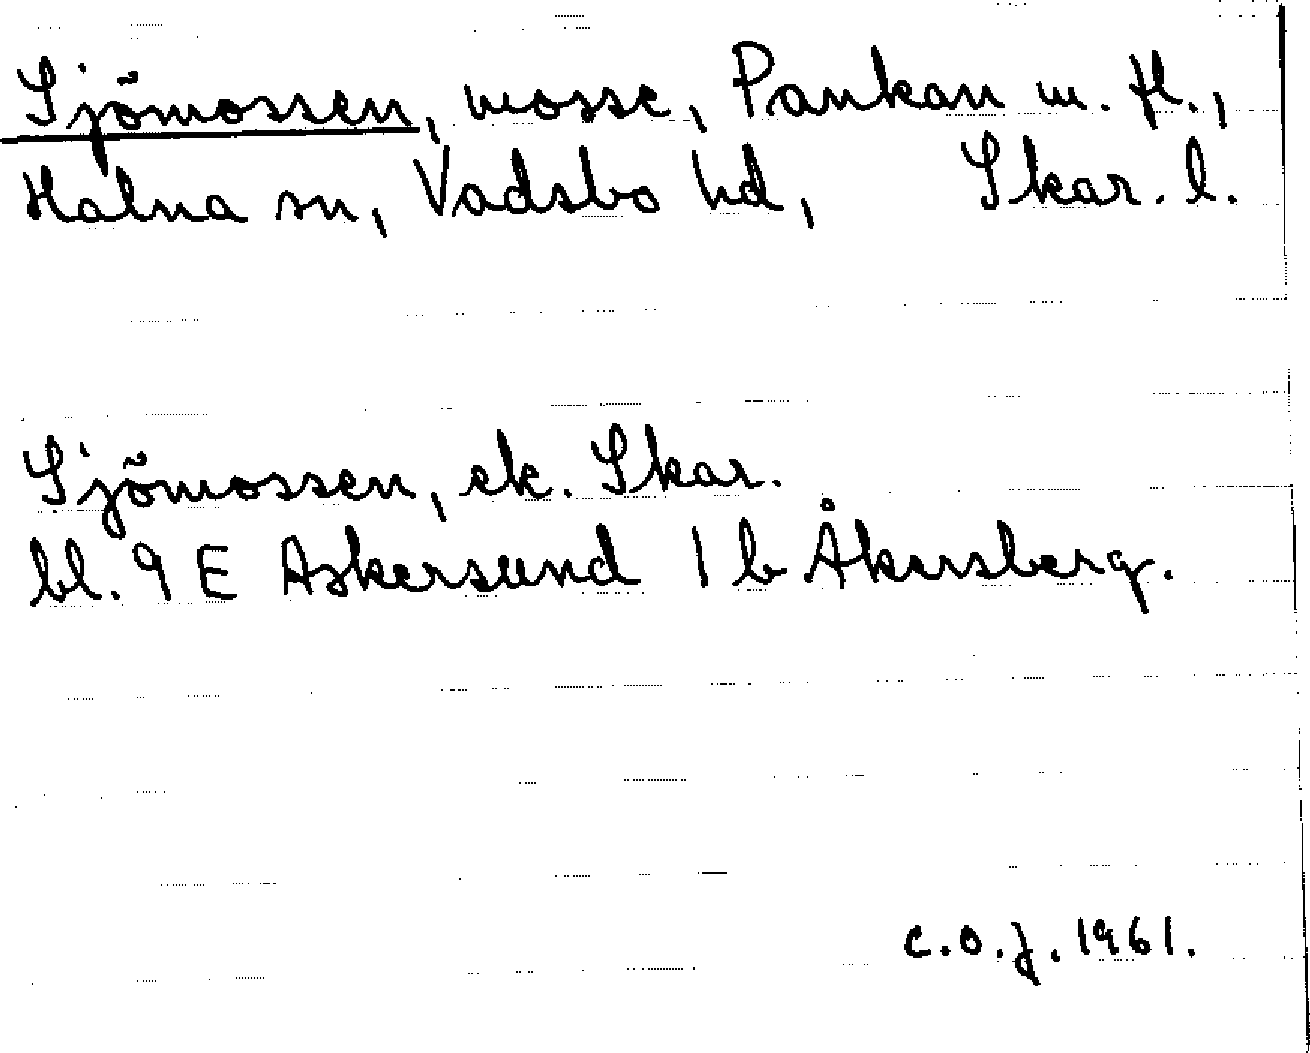 Sjömossen, mosse, Pankan m. fl.,
Halna sn, Vadsbo hd, Skar. l.
Sjömossen, ek. Skar.
bl. 9 E Askersund 1 b Åkersberg.
C.O.J. 1961.